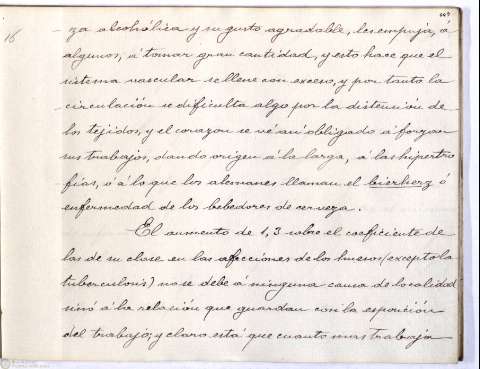 16
za alcohólica y su gusto agradable, les empuja, á
algunos, á tomar gran cantidad, y esto hace que el
sistema vascular se llene con exceso, y por tanto la
circulación se dificulta algo por la distensión de
los tejidos, y el corazon se vé asi obligado á forzar
sus trabajos, dando origen á la larga, á las hipertro
fias, ó á lo que los alemanes llaman el bierherz ó
enfermedad de los bebedores de cerveza.
El aumento de 1,3 sobre el coeficiente de
las de su clase en las afecciones de los huesos (excepto la
tuberculosis) no se debe á ninguna causa de localidad
sinó á la relación que guardan con la exposición
del trabajo; y claro está que cuanto mas trabaja